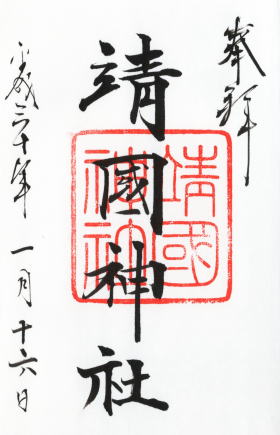 奉拝
靖國神社
靖國神社
平成三十年一月十六日